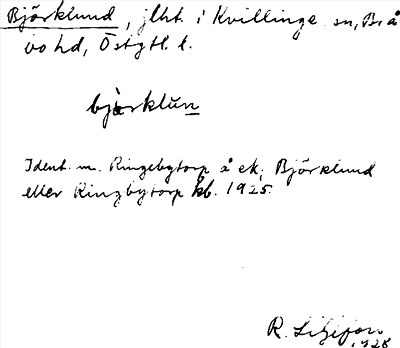 Björklund, jlht. i Kvillinge sn, Brå
bo hd, Östgtl. l.
bjö̀rklŭn
Ident. m. Ringebytorp å ek; Björklund
eller Ringbytorp kb. 1925.
R. Liljefors
1928